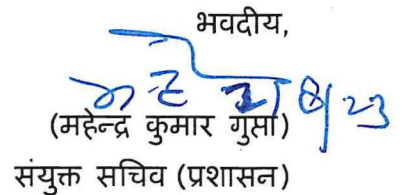 भवदीय,
(महेन्द्र कुमार गुप्ता)
संयुक्त सचिव (प्रशासन)